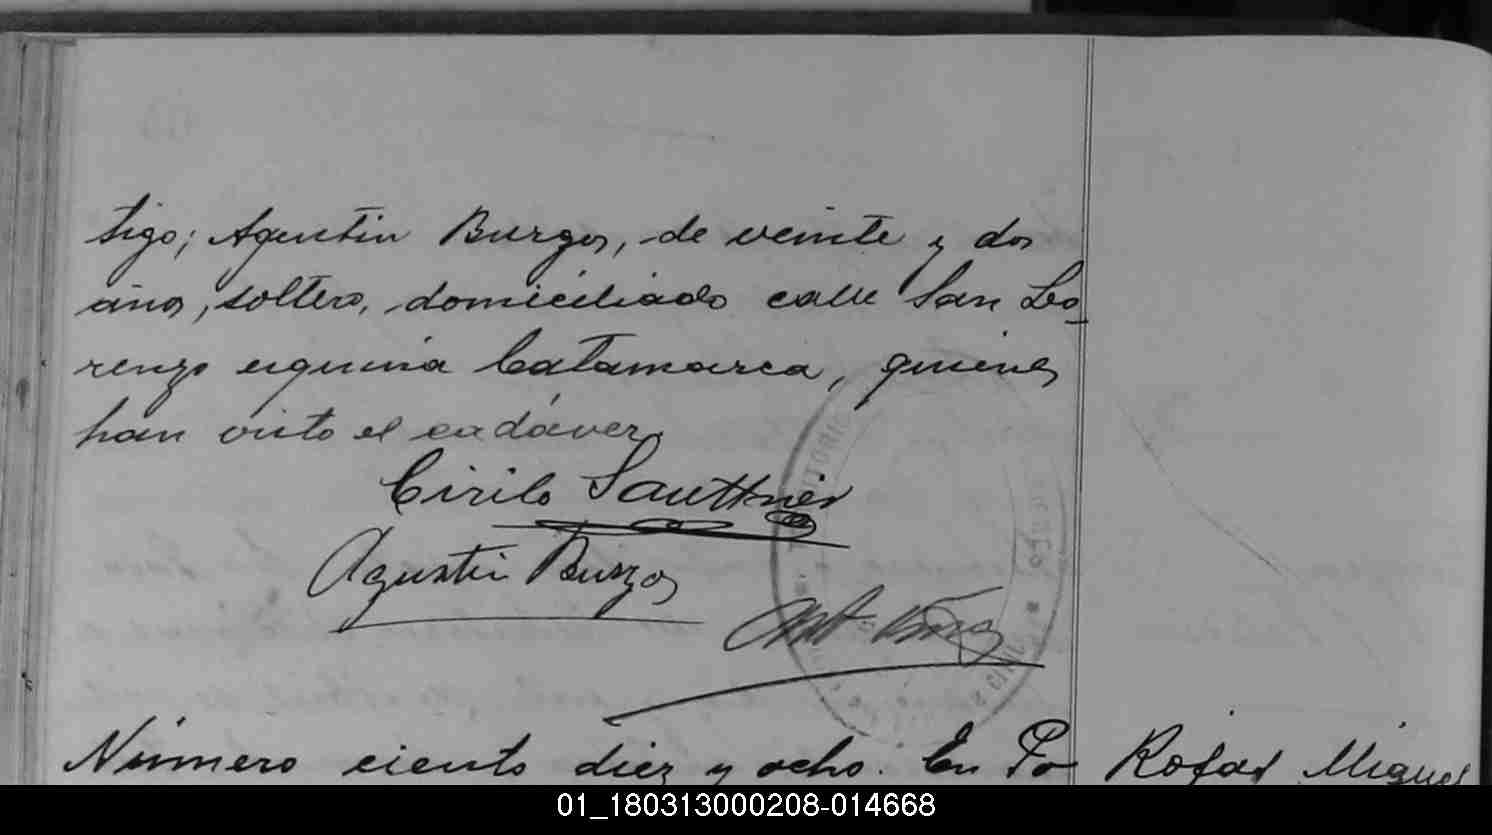 tigo; Agustin Burgos, de veinte y dos
años, soltero, domiciliado calle San Lo-
renzo esquina Catamarca, quienes
han visto el cadáver.
Cirilo Sauthnér
Agustin Burgos
Número ciento diez y ocho. En Po
Rojas Miguel
01_180313000208-014668